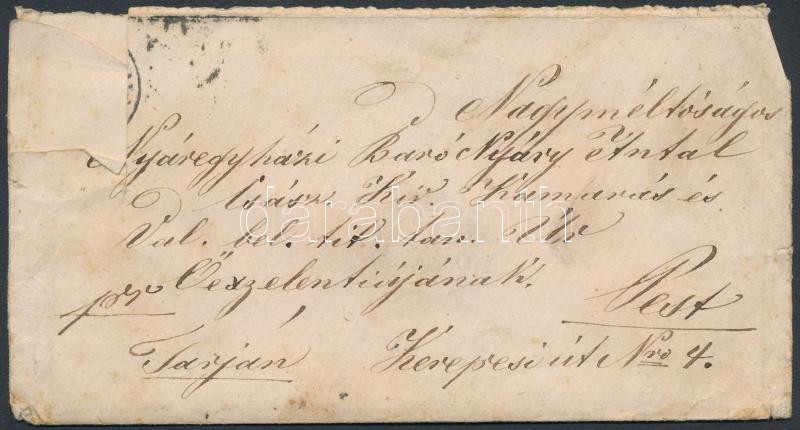 Nagyméltóságos
Nyáregyházi Baró Nyáry Antal
Csász. Kir. Kamarás és
Val. bel. tit. tan. Úr
Őexzelentiájának.
pr Pest
Tarján Kerepesi út Nro 4.
darabanth